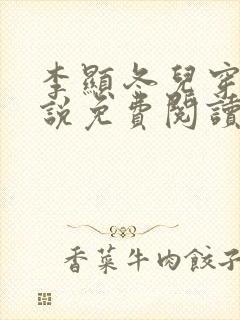 李顯冬兒穿
說免費閱讀
香菜牛肉餃子